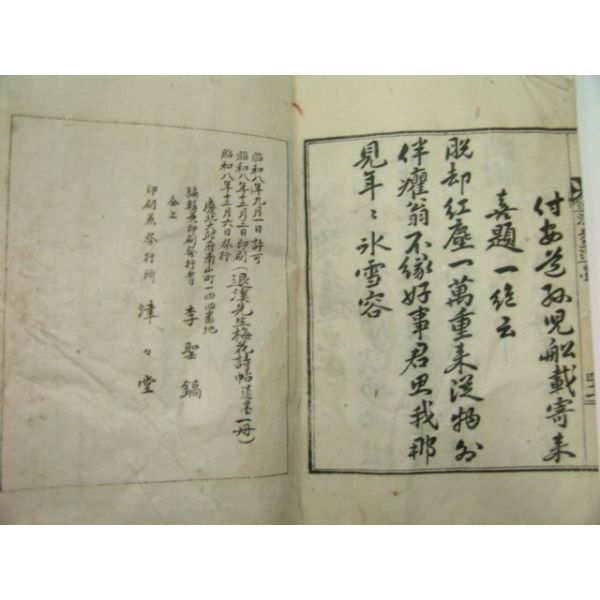 付安道孫兒船載寄来
喜題一絶云
脱却紅塵一萬重来従物外
伴癯翁不縁好事君思我那
見年〻氷雪容
昭和八年九月一日許可
昭和八年十二月三日印刷(退溪先生梅花詩帖遺墨一冊)
昭和八年十二月六日發行
慶北大邱府南山町一四四番地
編輯兼印刷發行者 李聖鎬
仝上
印刷兼發行所 津々堂